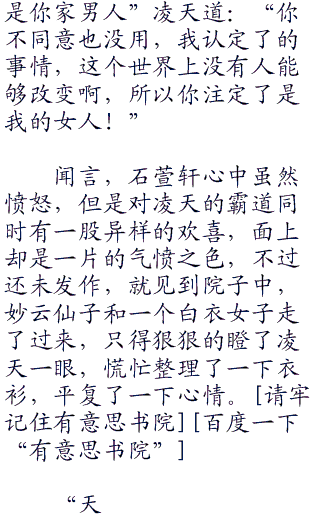 是你家男人”凌天道：“你
不同意也没用，我认定了的
事情，这个世界上没有人能
够改变啊，所以你注定了是
我的女人！”
闻言，石萱轩心中虽然
愤怒，但是对凌天的霸道同
时有一股异样的欢喜，面上
却是一片的气愤之色，不过
还未发作，就见到院子中，
妙云仙子和一个白衣女子走
了过来，只得狠狠的瞪了凌
天一眼，慌忙整理了一下衣
衫，平复了一下心情。[请牢
记住有意思书院][百度一下
“有意思书院”]
“天